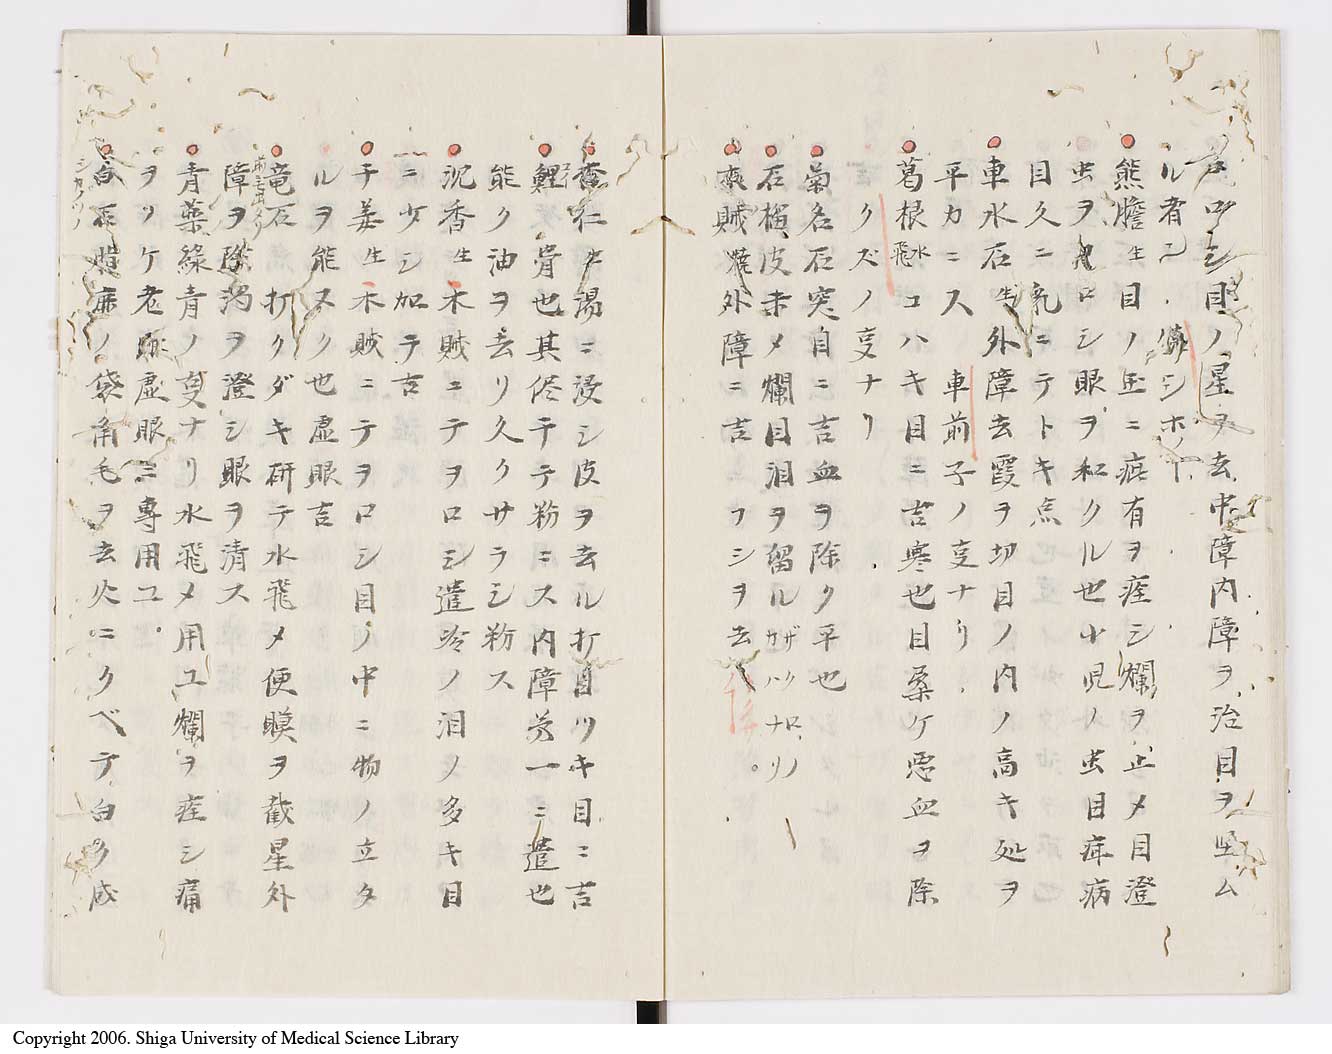 目ノ星ヲ去中障内障ヲ治目ヲ堅ム
ル者ニ
熊膽生目ノ玉ニ疵有ヲ痊シ爛ヲ止メ目澄
虫ヲ コロシ眼ヲ和クル也小児ノ虫目疳病
目久ニ乳ニテトキ点
車水石生外障去霞ヲ切目ノ内ノ高キ処ヲ
平カニス 車前子ノ叓ナリ
葛根水飛コハキ目ニ吉寒也目桑ケ悪血ヲ除
クズノ叓ナリ
菊名石突目ニ吉血ヲ除ク平也
石榴皮赤メ爛目泪ヲ留ルザクロノ ナリ
賊焼外障ニ吉 フシヲ去
杏仁 湯ニ浸シ皮ヲ去ル打目ツキ目ニ吉
鯉 骨也其侭干テ粉ニス内障第一ニ遣也
能ク油ヲ去リ久クサラシ粉ス
沉香生木賊ニテヲロシ遣冷ノ泪ノ多キ目
ニ少シ加テ吉
干姜生木賊ニテヲロシ目ノ中ニ物ノ立タ
ルヲ能ヌク也虚眼吉
竜石 打クダキ研テ水飛メ便膜ヲ截星外
障ヲ除濁ヲ澄シ眼ヲ清ス
青薬緑青ノ叓ナリ水飛メ用ユ爛ヲ痊シ痛
ヲソケ老眼虚眼ニ專用ユ
石 ノ袋角毛ヲ去火ニクベテ白ク成
Copyright 2006. Shiga University of Medical Science Library